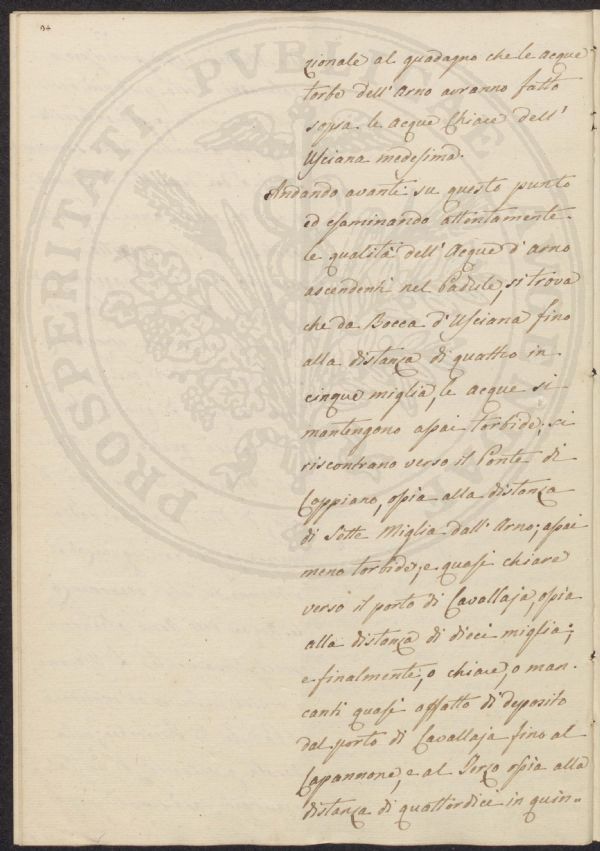 94
zionale al guadagno che le acque
torbe dell'Arno avranno fatto
sopra le acque Chiare dell'
Usciana medesima.
Andando avanti su questo punto
ed esaminando attentamente
le qualità dell'Acque d'Arno
ascendenti nel Padule, si trova
che da Bocca d'Usciana fino
alla distanza di quattro in
cinque miglia, le acque si
mantengono assai torbide; si
riscontrano verso il Ponte di
Cappiano, ossia alla distanza
di Sette Miglia dall'Arno; assai
meno torbide; e quasi chiare
verso il porto di Cavallaja, ossia
alla distanza di dieci miglia;
e finalmente, o chiare, o man-
canti quasi affatto di deposito
dal porto di Cavallaja fino al
Capannone, e al Terzo ossia alla
distanza di quattordici in quin=
PROSPERITATI PVBLICAE